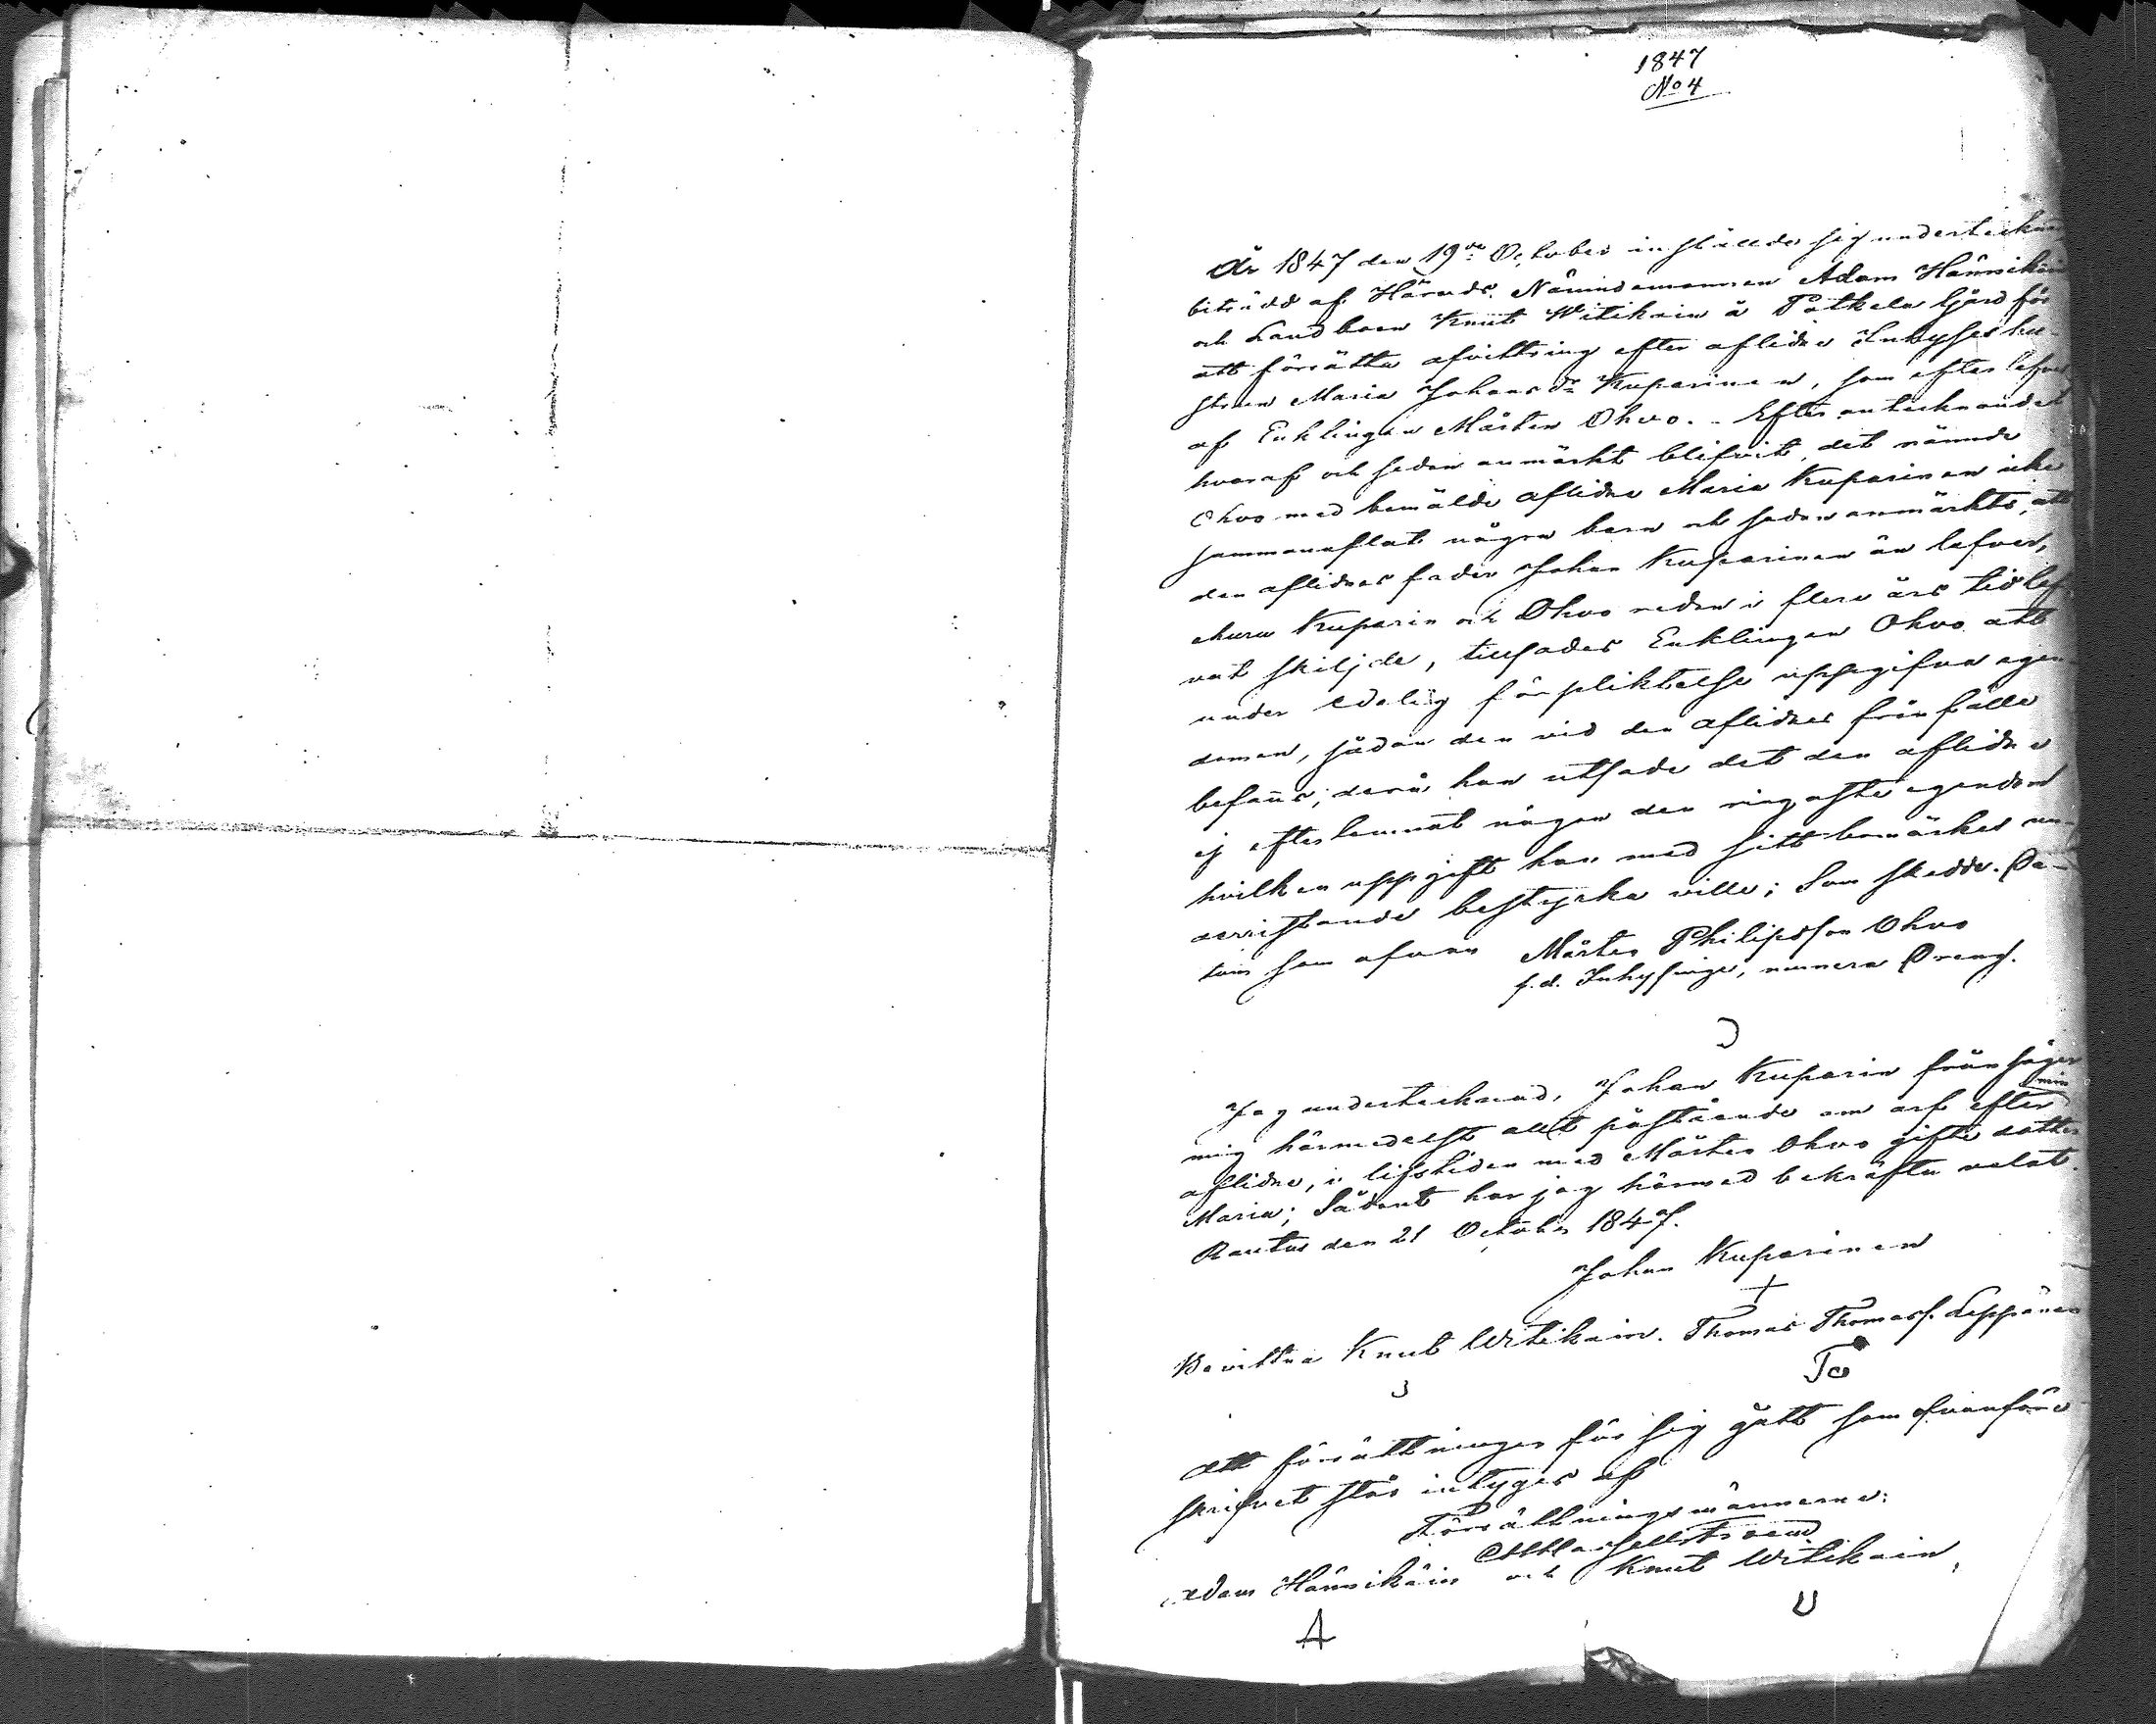 1847
No 4
År 1847 den 19de October instälde sig undertecknad
biträdd af Härads Nämndemannen Adam Hännikäin
och Landboen Knut Witikain å Potkela Gård för
att förrätta afvittring efter aflidne Inhyseshu-
strun Maria Johansdr Kuparinen, som efterlefves
af Enklingen Mårten Ohvo. - Efter antecknandet
hvaraf och sedan anmärkt blifvit, det nämnde
Ohvo med bemälde aflidne Maria Kuparinen icke
sammanaflat några barn och sedan anmärkts, att
den aflidnes fader Johan Kuparinen än lefver,
ehuru Kuparin och Ohvo redan i flere års tid lef-
vat skiljde, tillsades Enklingen Ohvo att
under edelig förpliktelse uppgifva egen-
domen, sådan den vid den aflidnes frånfälle
befanns; derå han utsade det den aflidne
ej efterlemnat någon den ringaste egendom
hvilken uppgift han med sitt bomärkes un-
derristande bestyrka ville; Som skedde. Da-
tum som ofvan Mårten Philipsson Ohvo
f.d. Inhysinge, numera Dreng.
Jag undertecknad, Johan Kuparin frånsäger
mig härmedelst allt påstående om arf efter min
aflidne, i lifstiden med Mårten Ohvo gifte dotter
Maria; Sådant har jag härmed bekräfta velat.
Rautus den 21 October 1847.
Johan Kuparinen
+
Bevittna Knut Witikain. Thomas Thomass. Leppänen
Att förrättningen för sig gått som ofvanföre
skrifvet står intyges af
Förrättningsmännerne:
Adam Hännikäin och Knut Witikain,
A U